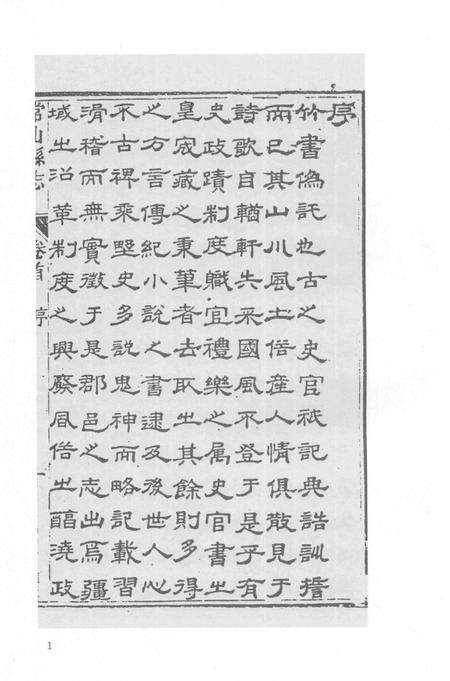 序
竹書偽託也古之史官祗記典誥訓誓
而已其山川風土俗產人情俱散見于
詩歌自輶軒失采國風不登于是乎有
史政蹟制度職宜禮樂之属史官書之
皇宬藏之秉筆者去取之其餘則多得
之方言傳紀小說之書逮及後世人心
不古裨乘野史多說鬼神而略記載習
滑稽而無實徵于是郡邑之志出焉疆
域之沿革制度之興廢風俗之醇澆政
常山縣志 卷首 序 一
1